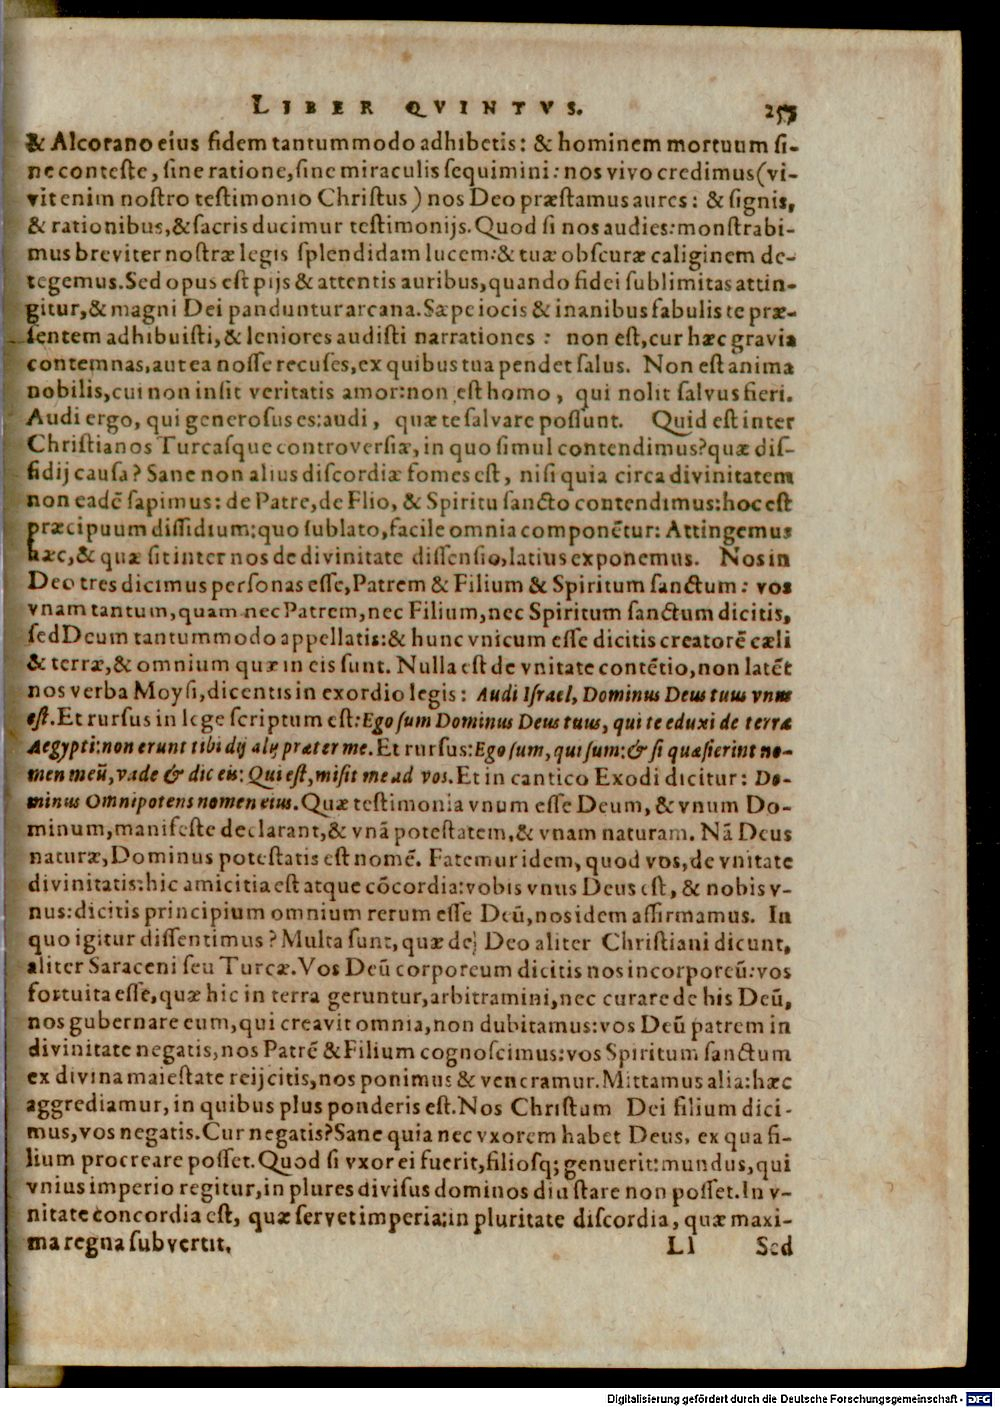 LIBER QVINTVS.
& Alcorano eius fidem tantummodo adhibetis: & hominem mortuum si-
ne conteste, sine ratione, sine miraculis sequimini: nos vivo credimus (vi-
vit enim nostro testimonio Christus) nos Deo præstamus aures: & signis,
& rationibus, & sacris ducimur testimonijs. Quod si nos audies: monstrabi-
mus breviter nostræ legis splendidam lucem: & tuæ obscuræ caliginem de-
tegemus. Sed opus est pijs & attentis auribus, quando fidei sublimitas attin-
gitur, & magni Dei panduntur arcana. Sæpe iocis & inanibus fabulis te præ-
sentem adhibuisti, & leniores audisti narrationes: non est, cur hæc gravia
contemnas, aut ea nosse recuses, ex quibus tua pendet salus. Non est anima
nobilis, cui non insit veritatis amor: non est homo, qui nolit salvus fieri.
Audi ergo, qui generosus es: audi, quæ te salvare possunt. Quid est inter
Christianos Turcasque controversiæ, in quo simul contendimus? quæ dis-
sidij causa? Sane non alius discordiæ fomes est, nisi quia circa divinitatem
non eadē sapimus: de Patre, de Flio, & Spiritu sancto contendimus: hoc est
præcipuum dissidium: quo sublato, facile omnia componētur: Attingemus
hæc, & quæ sit inter nos de divinitate dissensio, latius exponemus. Nos in
Deo tres dicimus personas esse, Patrem & Filium & Spiritum sanctum: vos
vnam tantum, quam nec Patrem, nec Filium, nec Spiritum sanctum dicitis,
sed Deum tantummodo appellatis: & hunc vnicum esse dicitis creatorē cæli
& terræ, & omnium quæ in eis sunt. Nulla est de vnitate contētio, non latēt
nos verba Moysi, dicentis in exordio legis: Audi Israel, Dominus Deus tuus vnus
est. Et rursus in lege scriptum est: Ego sum Dominus Deus tuus, qui te eduxi de terra
Aegypti: non erunt tibi dij alij præter me. Et rursus: Ego sum, qui sum: & si quæsierint no-
men meū, vade & dic eis: Qui est, misit me ad vos. Et in cantico Exodi dicitur: Do-
minus Omnipotens nomen eius. Quæ testimonia vnum esse Deum, & vnum Do-
minum, manifeste declarant, & vnā potestatem, & vnam naturam. Nā Deus
naturæ, Dominus potestatis est nomē. Fatemur idem, quod vos, de vnitate
divinitatis: hic amicitia est atque cōcordia: vobis vnus Deus est, & nobis v-
nus: dicitis principium omnium rerum esse Deū, nos idem affirmamus. In
quo igitur dissentimus? Multa sunt, quæ de Deo aliter Christiani dicunt,
aliter Saraceni seu Turcæ. Vos Deū corporeum dicitis nos incorporeū: vos
fortuita esse, quæ hic in terra geruntur, arbitramini, nec curare de his Deū,
nos gubernare eum, qui creavit omnia, non dubitamus: vos Deū patrem in
divinitate negatis, nos Patrē & Filium cognoscimus: vos Spiritum sanctum
ex divina maiestate reijcitis, nos ponimus & veneramur. Mittamus alia: hæc
aggrediamur, in quibus plus ponderis est. Nos Christum Dei filium dici-
mus, vos negatis. Cur negatis? Sane quia nec vxorem habet Deus, ex qua fi-
lium procreare posset. Quod si vxor ei fuerit, filiosq; genuerit: mundus, qui
vnius imperio regitur, in plures divisus dominos diu stare non posset. In v-
nitate concordia est, quæ servet imperia: in pluritate discordia, quæ maxi-
ma regna subvertit.
Ll Sed
Digitalisierung gefördert durch die Deutsche Forschungsgemeinschaft - DFG